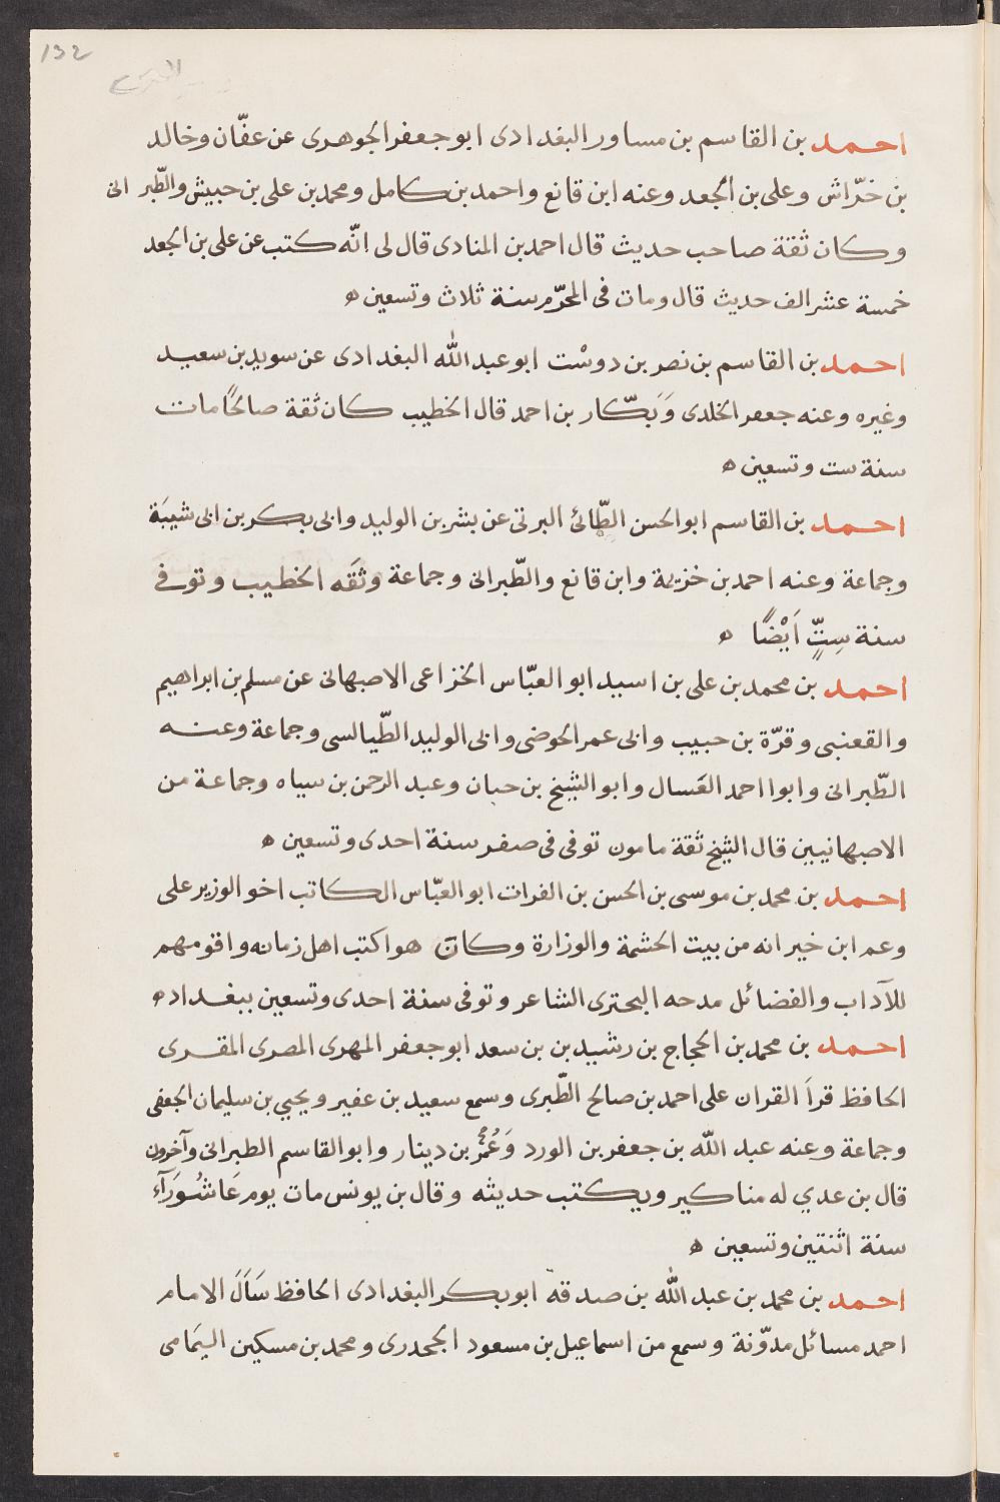 132
احمد بن القاسم بن مساور البغدادى ابو جعفر الجوهرى عن عفّان وخالد
بن خرّاش وعلى بن الجعد وعنه ابن قانع واحمد بن كامل ومحمد بن على بن حبيش والطّبرانى
وكان ثقة صاحب حديث قال احمد بن المنادى قال لى انّه كتب عن على بن الجعد
خمسة عشر الف حديث قال ومات فى المحرّم سنة ثلاث وتسعين ه
احمد بن القاسم بن نصر بن دوسْت ابو عبد الله البغدادى عن سويد بن سعيد
وغيره وعنه جعفر الخلدى وَبَكّار بن احمد قال الخطيب كان ثقة صالحًا مات
سنة ست وتسعين ه
احمد بن القاسم ابو الحسن الطّائىّ البرتى عن بشر بن الوليد وابى بكر بن ابى شيبَة
وجماعة وعنه احمد بن خزيمة وابن قانع والطّبرانى وجماعة وثقَه الخطيب وتوفى
سنة سِتٍّ اَيْضًا ه
احمد بن محمد بن على بن اسيد ابو العبّاس الخزاعى الاصبهانى عن مسلم بن ابراهيم
والقعنبى وقرّة بن حبيب وابى عمر الحوضى وابى الوليد الطّيالسى وجماعة وعنه
الطّبرانى وابوا احمد العَسال وابو الشيخ بن حبان وعبد الرحمن بن سياه وجماعة من
الاصبهانيين قال الشيخ ثقة مامون توفى فى صفر سنة احدى وتسعين ه
احمد بن محمد بن موسى بن الحسن بن الفرات ابو العبّاس الكاتب اخو الوزير على
وعم ابن خير انه من بيت الحشمة والوزارة وكان هو اكتب اهل زمانه واقومهم
للآداب والفضائل مدحه البحترى الشاعر وتوفى سنة احدى وتسعين ببغداد ه
احمد بن محمد بن الحجاج بن رشيد بن بن سعد ابو جعفر المهرى المصرى المقرى
الحافظ قرأ القران على احمد بن صالح الطّبرى وسمع سعيد بن عفير ويحيي بن سليمان الجعفى
وجماعة وعنه عبد اللّه بن جعفر بن الورد وَعُمر بن دينار وابو القاسم الطبرانى وآخرون
قال بن عدي له مناكير ويكتب حديثه وقال بن يونس مات يوم عَاشُورَآء
سنة اثنتين وتسعين ه
احمد بن محمد بن عبد الله بن صدقة ابو بكر البغدادى الحافظ سَأَلَ الامام
احمد مسائل مدوّنة وسمع من اسماعيل بن مسعود الجحدرى ومحمد بن مسكين اليمَامى